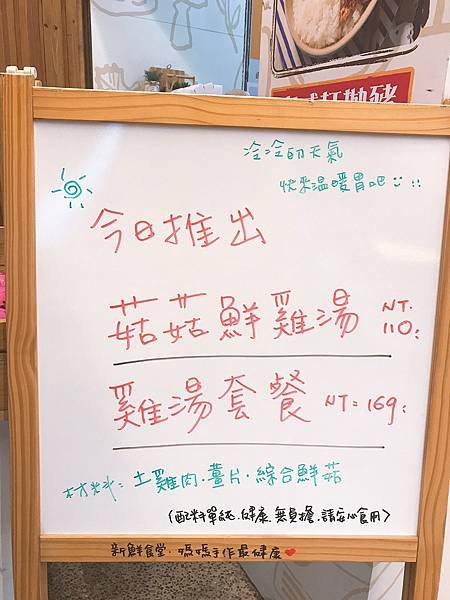 打拋豬
冷冷的天氣
快來溫暖胃吧
今日推出
菇菇鮮雞湯 NT.110.
雞湯套餐 NT=169.
材料:土雞肉.薑片.綜合鮮菇
(配料單純.健康.無負擔.請安心食用)
新鮮食堂.媽媽手作最健康